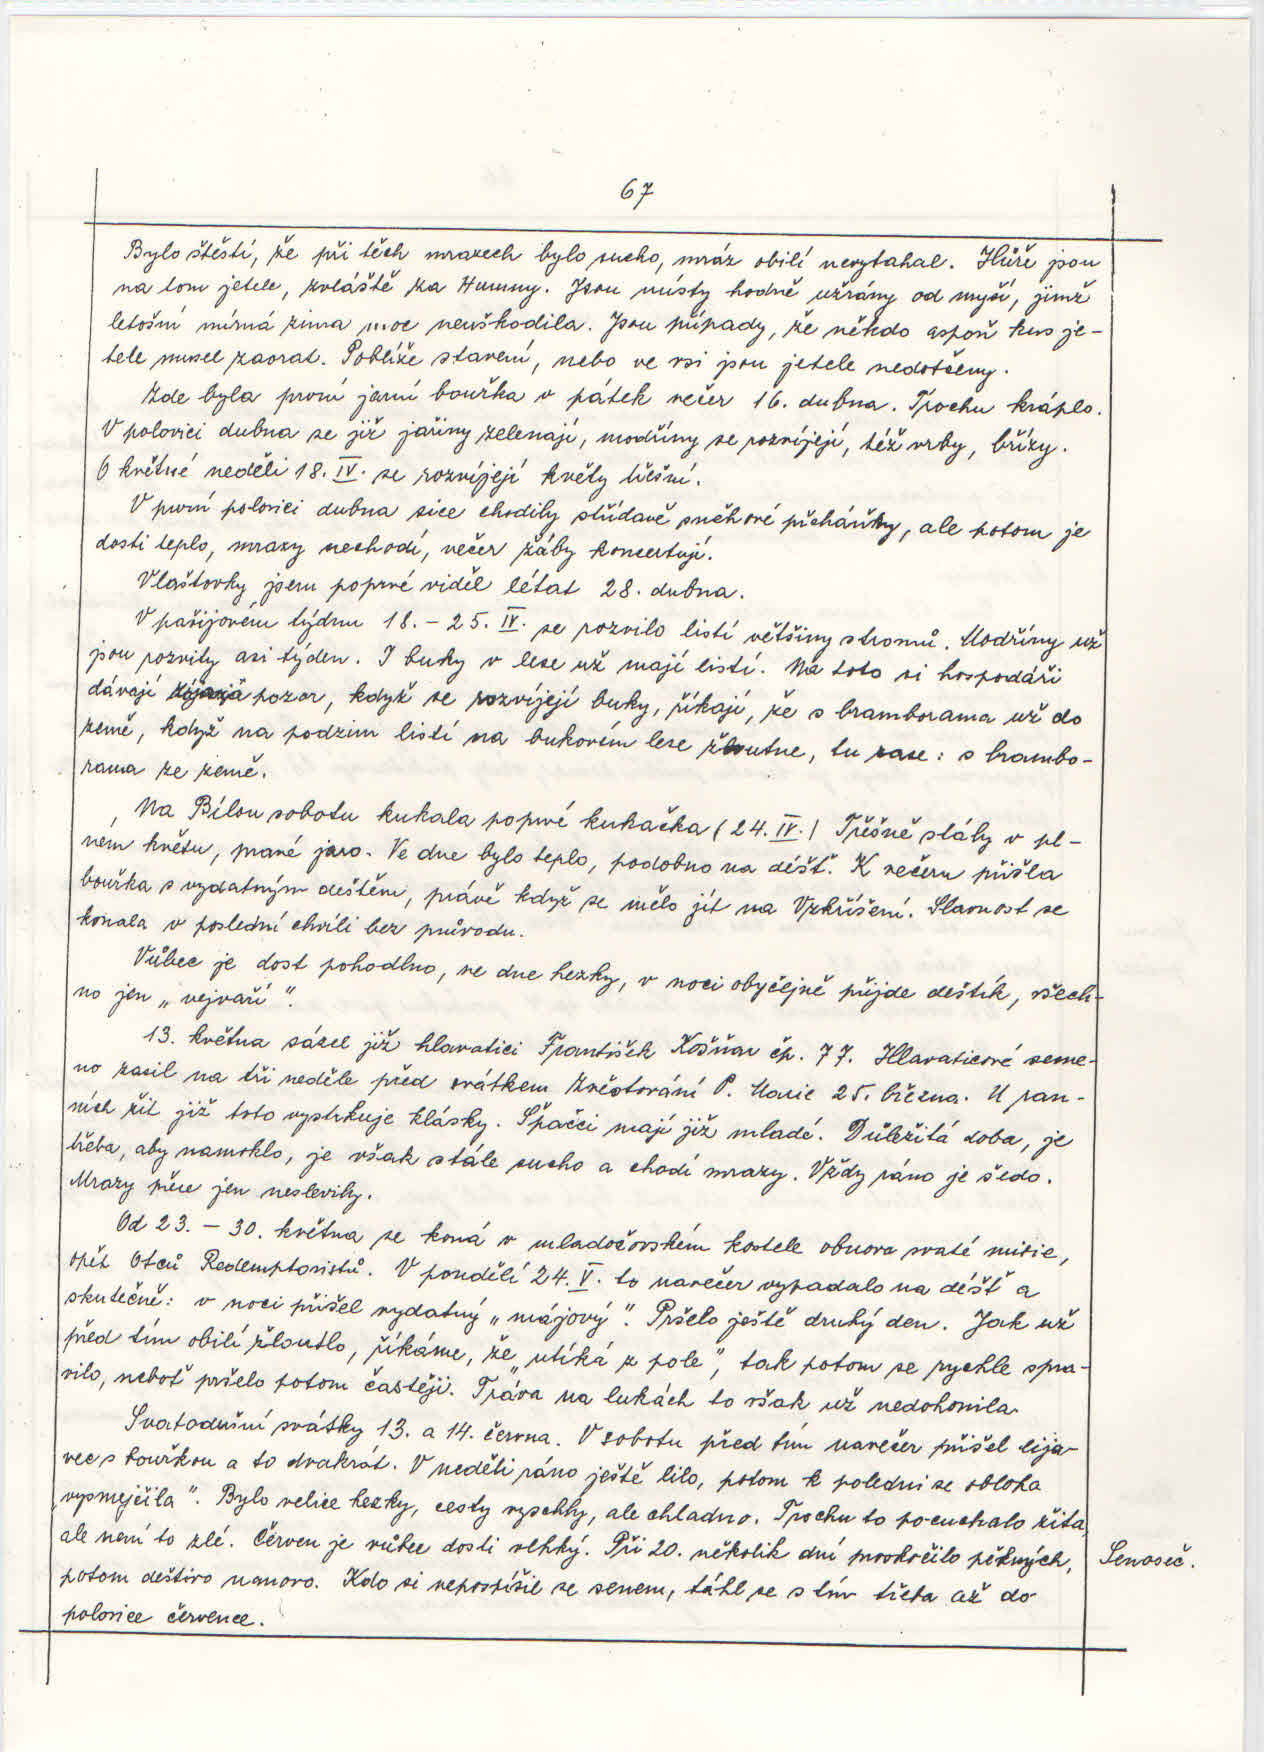 67
Bylo štěstí, že při těch mrazech bylo sucho, mráz obilí nevytahal. Hůře jsou
na tom jetele, zvláště za Humny. Jsou místy hodně užrány od myší, jimž
letošní mírná zima moc neuškodila. Jsou případy, že někdo aspoň kus je-
tele musel zaorat. Poblíže stavení, nebo ve vsi jsou jetele nedotčeny.
Zde byla první jarní bouřka v pátek večer 16. dubna. Trochu káplo.
V polovici dubna se již jařiny zelenají, modříny se rozvíjejí, též vrby, břízy.
O květné neděli 18. IV. se rozvíjejí květy třešní.
V první polovici dubna sice chodily střídavě sněhové přeháňky, ale potom je
dosti teplo, mrazy nechodí, večer žáby koncertují.
Vlaštovky jsem poprvé viděl létat 28. dubna.
V pašijovém týdnu 18. - 25. IV. se rozvilo listí většiny stromů. Modříny už
jsou rozvity asi týden. I buky v lese už mají listí. Na toto si hospodáři
dávají pozor, když se rozvíjejí buky, říkají, že s bramborama už do
země, když na podzim listí na bukovém lese žloutne, tu zase: s brambo-
rama ze země.
Na Bílou sobotu kukala poprvé kukačka (24. IV.) Třešně stály v pl-
ném květu, pravé jaro. Ve dne bylo teplo, podobno na déšť. K večeru přišla
bouřka s vydatným deštěm, právě když se mělo jít na Vzkříšení. Slavnost se
konala v poslední chvíli bez průvodu.
Vůbec je dost pohodlno, ve dne hezky, v noci obyčejně přijde deštík, všech-
no jen „vejvaří".
13. května sázel již hlavatici František Košňar čp. 77. Hlavaticové seme-
no zasil na tři neděle před svátkem Zvěstování P. Marie 25. března. U ran-
ních žit již toto vystrkuje klásky. Špačci mají již mladé. Důležitá doba, je
třeba, aby namoklo, je však stále sucho a chodí mrazy. Vždy ráno je šedo.
Mrazy přece jen neslevily.
Od 23. - 30. května se koná v mladočovském kostele obnova svaté misie,
opět Otců Redemptoristů. V pondělí 24. V. to navečer vypadalo na déšť a
skutečně: v noci přišel vydatný „májový". Pršelo ještě druhý den. Jak už
před tím obilí žloutlo, říkáme, že „utíká z pole", tak potom se rychle spra-
vilo, neboť pršelo potom častěji. Tráva na lukách to však už nedohonila.
Svatodušní svátky 13. a 14. června. V sobotu před tím navečer přišel lija-
vec s bouřkou a to dvakrát. V neděli ráno ještě lilo, potom k poledni se obloha
„vysmejčila". Bylo velice hezky, cesty vyschly, ale chladno. Trochu to pocuchalo žita,
ale není to zlé. Červen je vůbec dosti vlhký. Při 20. několik dní proskočilo pěkných,
potom deštivo nanovo. Kdo si nepospíšil se senem, táhl se s tím třeba až do
polovice července.
Senoseč.